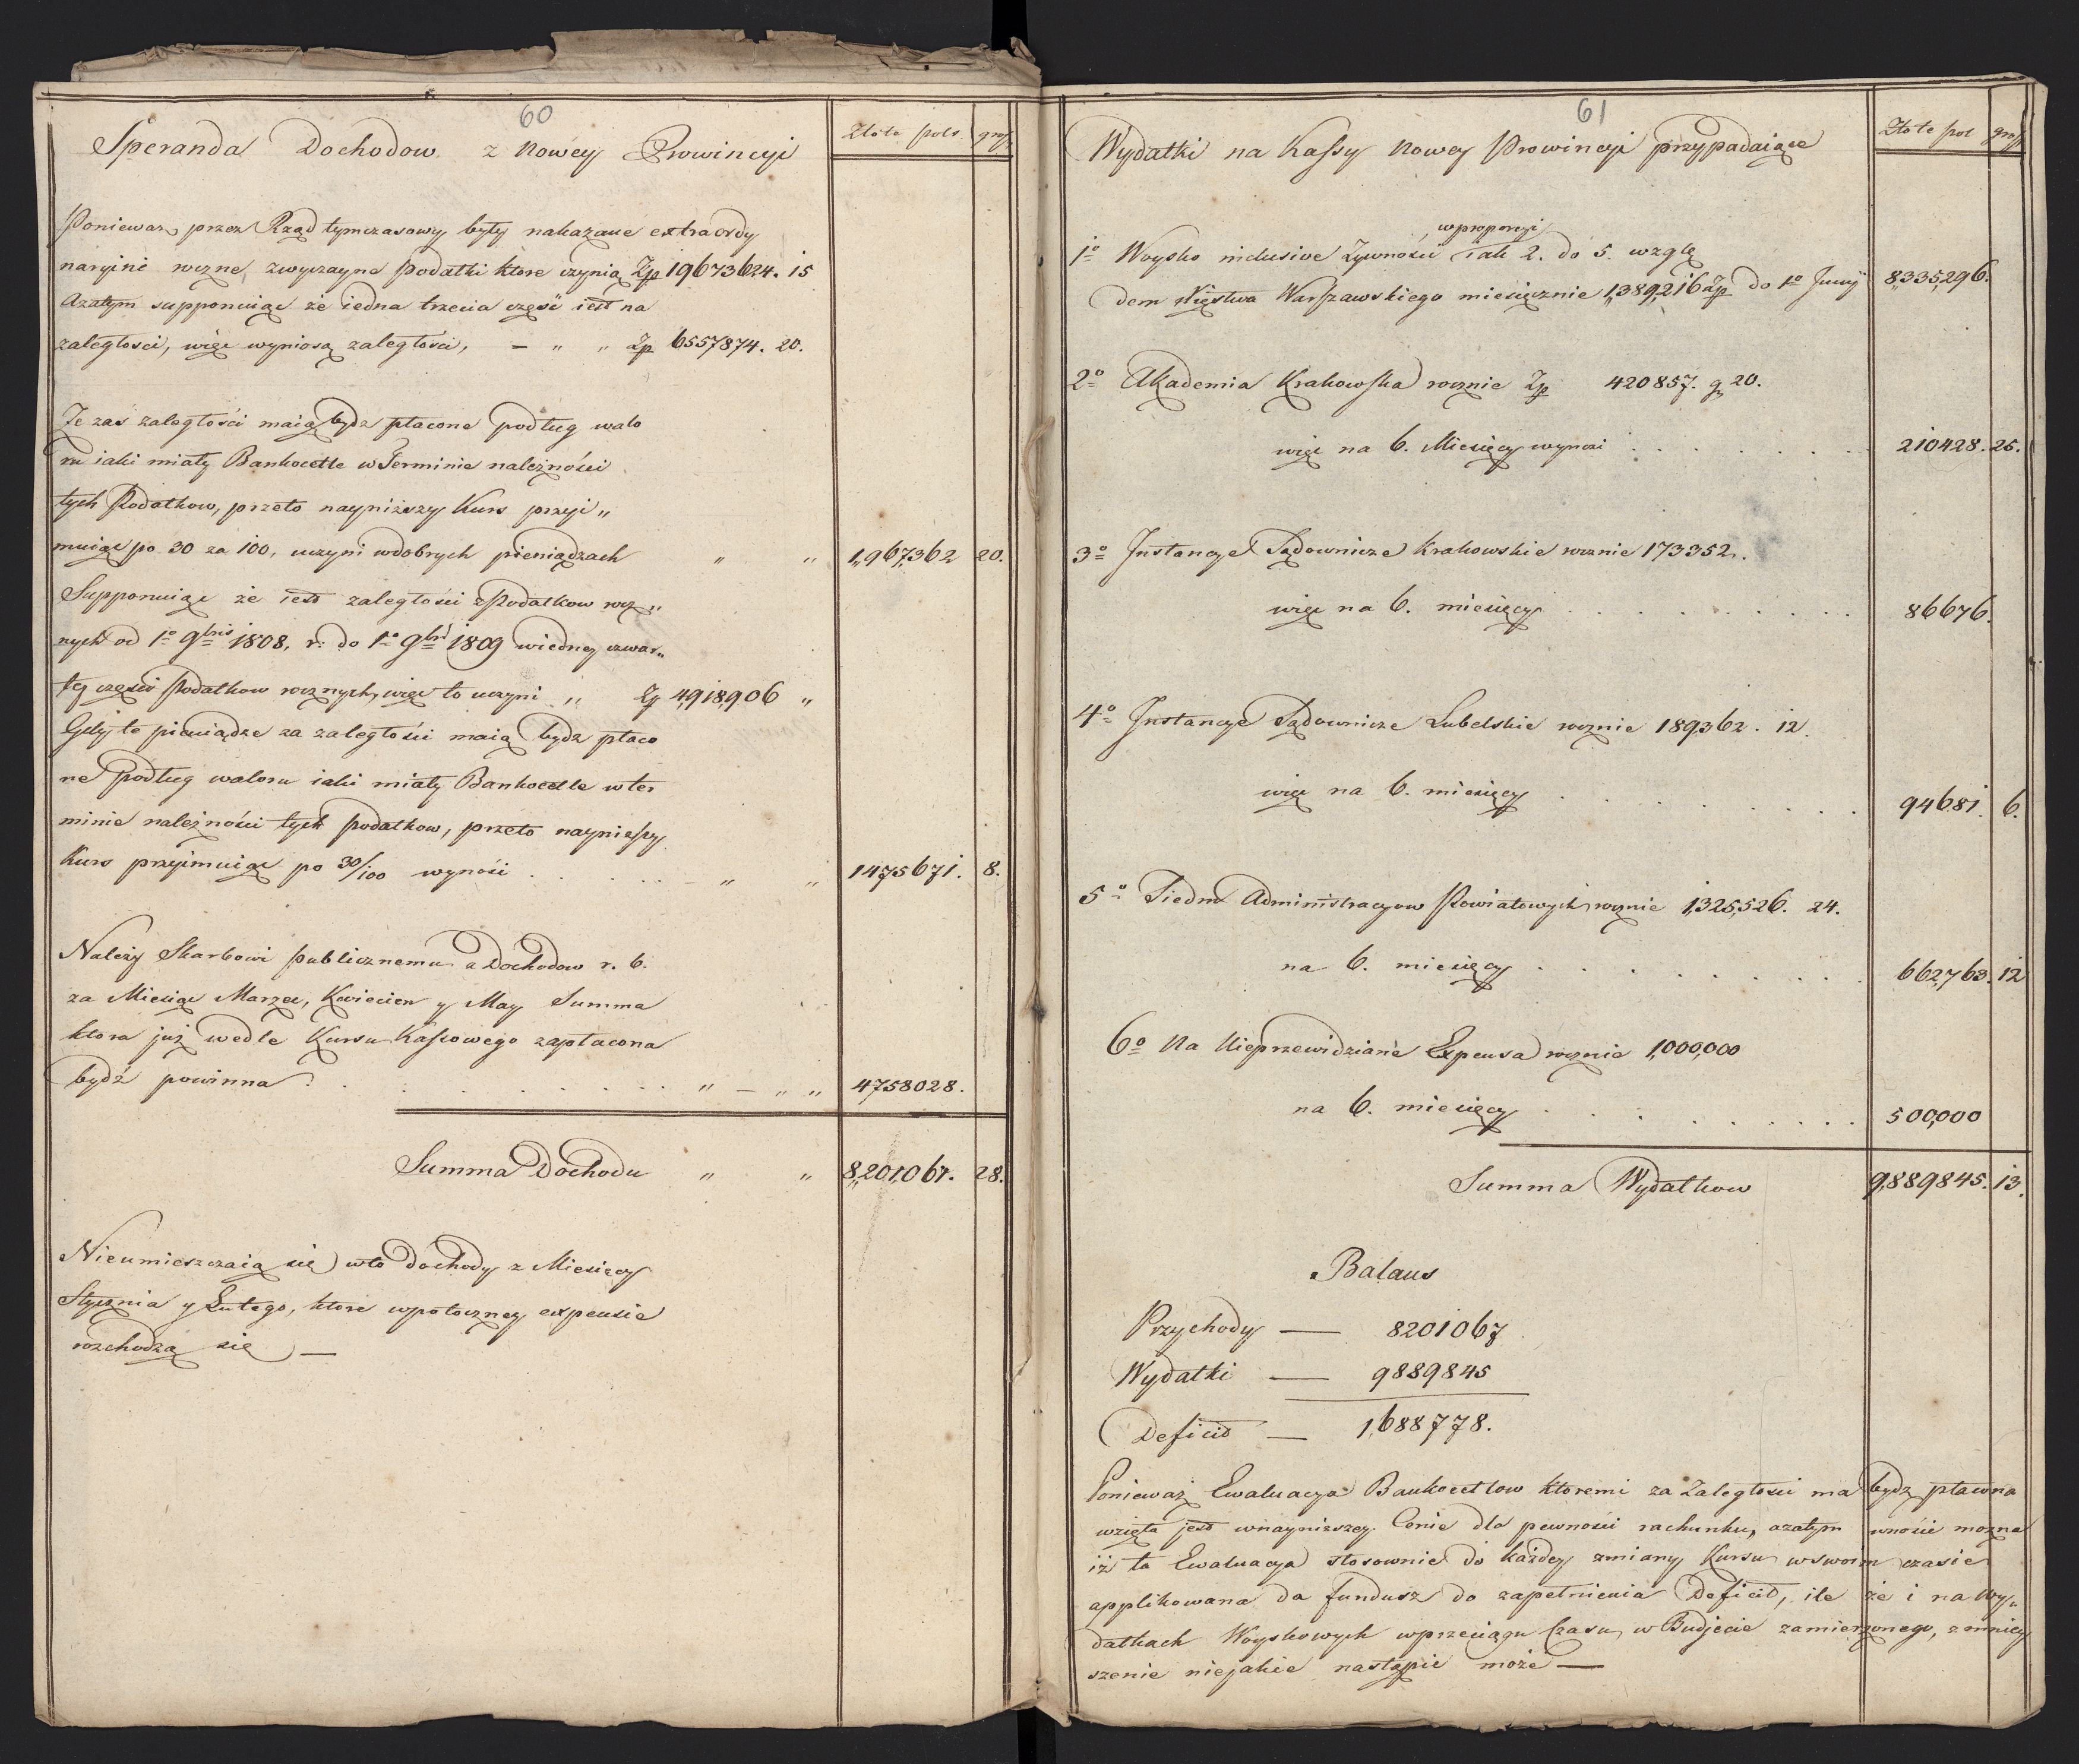 60
Speranda Dochodow z Nowey Prowincyi
Złote pols. gro/
Poniewasz przez Rząd tymczasowy były nakazane extraordy
naryine roczne, zwyczayne Podatki ktore czynią Zp 19673624. 15
Azatym supponuiąc że iedna trzecia część iest na
zaległosci, więc wyniosą zaległości, — " " Zp 6557874. 20.
Że zas zaległości maią bydz płacone podług walo
ru iaki miały Bankocetle w Terminie należności
tych Podatkow, przeto nayniższy Kurs przyi"
muiąc po 30 za 100, uczyni wdobrych pieniądzach " " 1,967,362 20.
Supponuiąc że iest zaległości z Podatkow rocz"
nych od 1º 9bris 1808, r. do 1º 9bris 1809 wiedney czwar"
tey części Podatkow rocznych, więc to uczyni " Zp 4,918,906 "
Gdy te pieniądze za zaległości maią bydz płaco
ne podług waloru iaki miały Bankocetle w ter
minie należności tych podatkow, przeto nayniższy
Kurs przyimuiąc po 30/100 wynośi . . . . . " " 1475671. 8.
Należy Skarbowi publicznemu a Dochodow r. b.
za Miesiąc Marzec, Kwiecien y May Summa
ktora już wedle Kursu Kassowego zapłacona
bydź powinna . . . . . . . . " — " " 4758028.
Summa Dochodu " " 8,201,067. 28.
Nieumieszczaią się wto Dochody z Miesięcy
Stycznia y Lutego, ktore wpotoczney expensie
rozchodzą się —
61
Wydatki na Kassy Nowey Prowincyi przypadaiące
Złote pol gro/
wproporcyi
1º Woysko inclusive Żywności iak 2. do 5. wzglę
dem Xięstwa Warszawskiego miesięcznie 1,389,216 Zp do 1º Junij 8,335,296.
2º Akademia Krakowska rocznie Zp 420857. g 20.
więc na 6. Miesięcy wynosi . . . . . . . 210428. 25.
3º Instancye Sądownicze Krakowskie rocznie 173352.
więc na 6. miesięcy . . . . . . . . 86676.
4º Instancye Sądownicze Lubelskie rocznie 189362. 12.
więc na 6. miesięcy . . . . . . . 94681. 6.
5º Administracyow Powiatowych rocznie 1,325,526. 24.
na 6. miesięcy . . . . . . . . 662,763. 12
6º Na Nieprzewidziane Expensa rocznie 1,000,000
na 6. miesięcy . . . . . . . . 500,000
Summa Wydatkow 9,889845. 13.
Balans
Przychody — 8201067
Wydatki — 9889845
Deficit — 1,688778.
Ponieważ Ewaluacya Bankocetlow ktoremi za Zaległości ma bydz płacona
wzięta jest wnayniższey Cenie dla pewności rachunku, azatym wnośić można
iż ta Ewaluacya stosownie do każdey zmiany Kursu wswoim czasie
applikowana da fundusz do zapełnienia Deficit, ile że i na Wy"
datkach Woyskowych wprzeciągu Czasu, w Budjecie zamierzonego, zmniey
szenie niejakie nastąpić może —